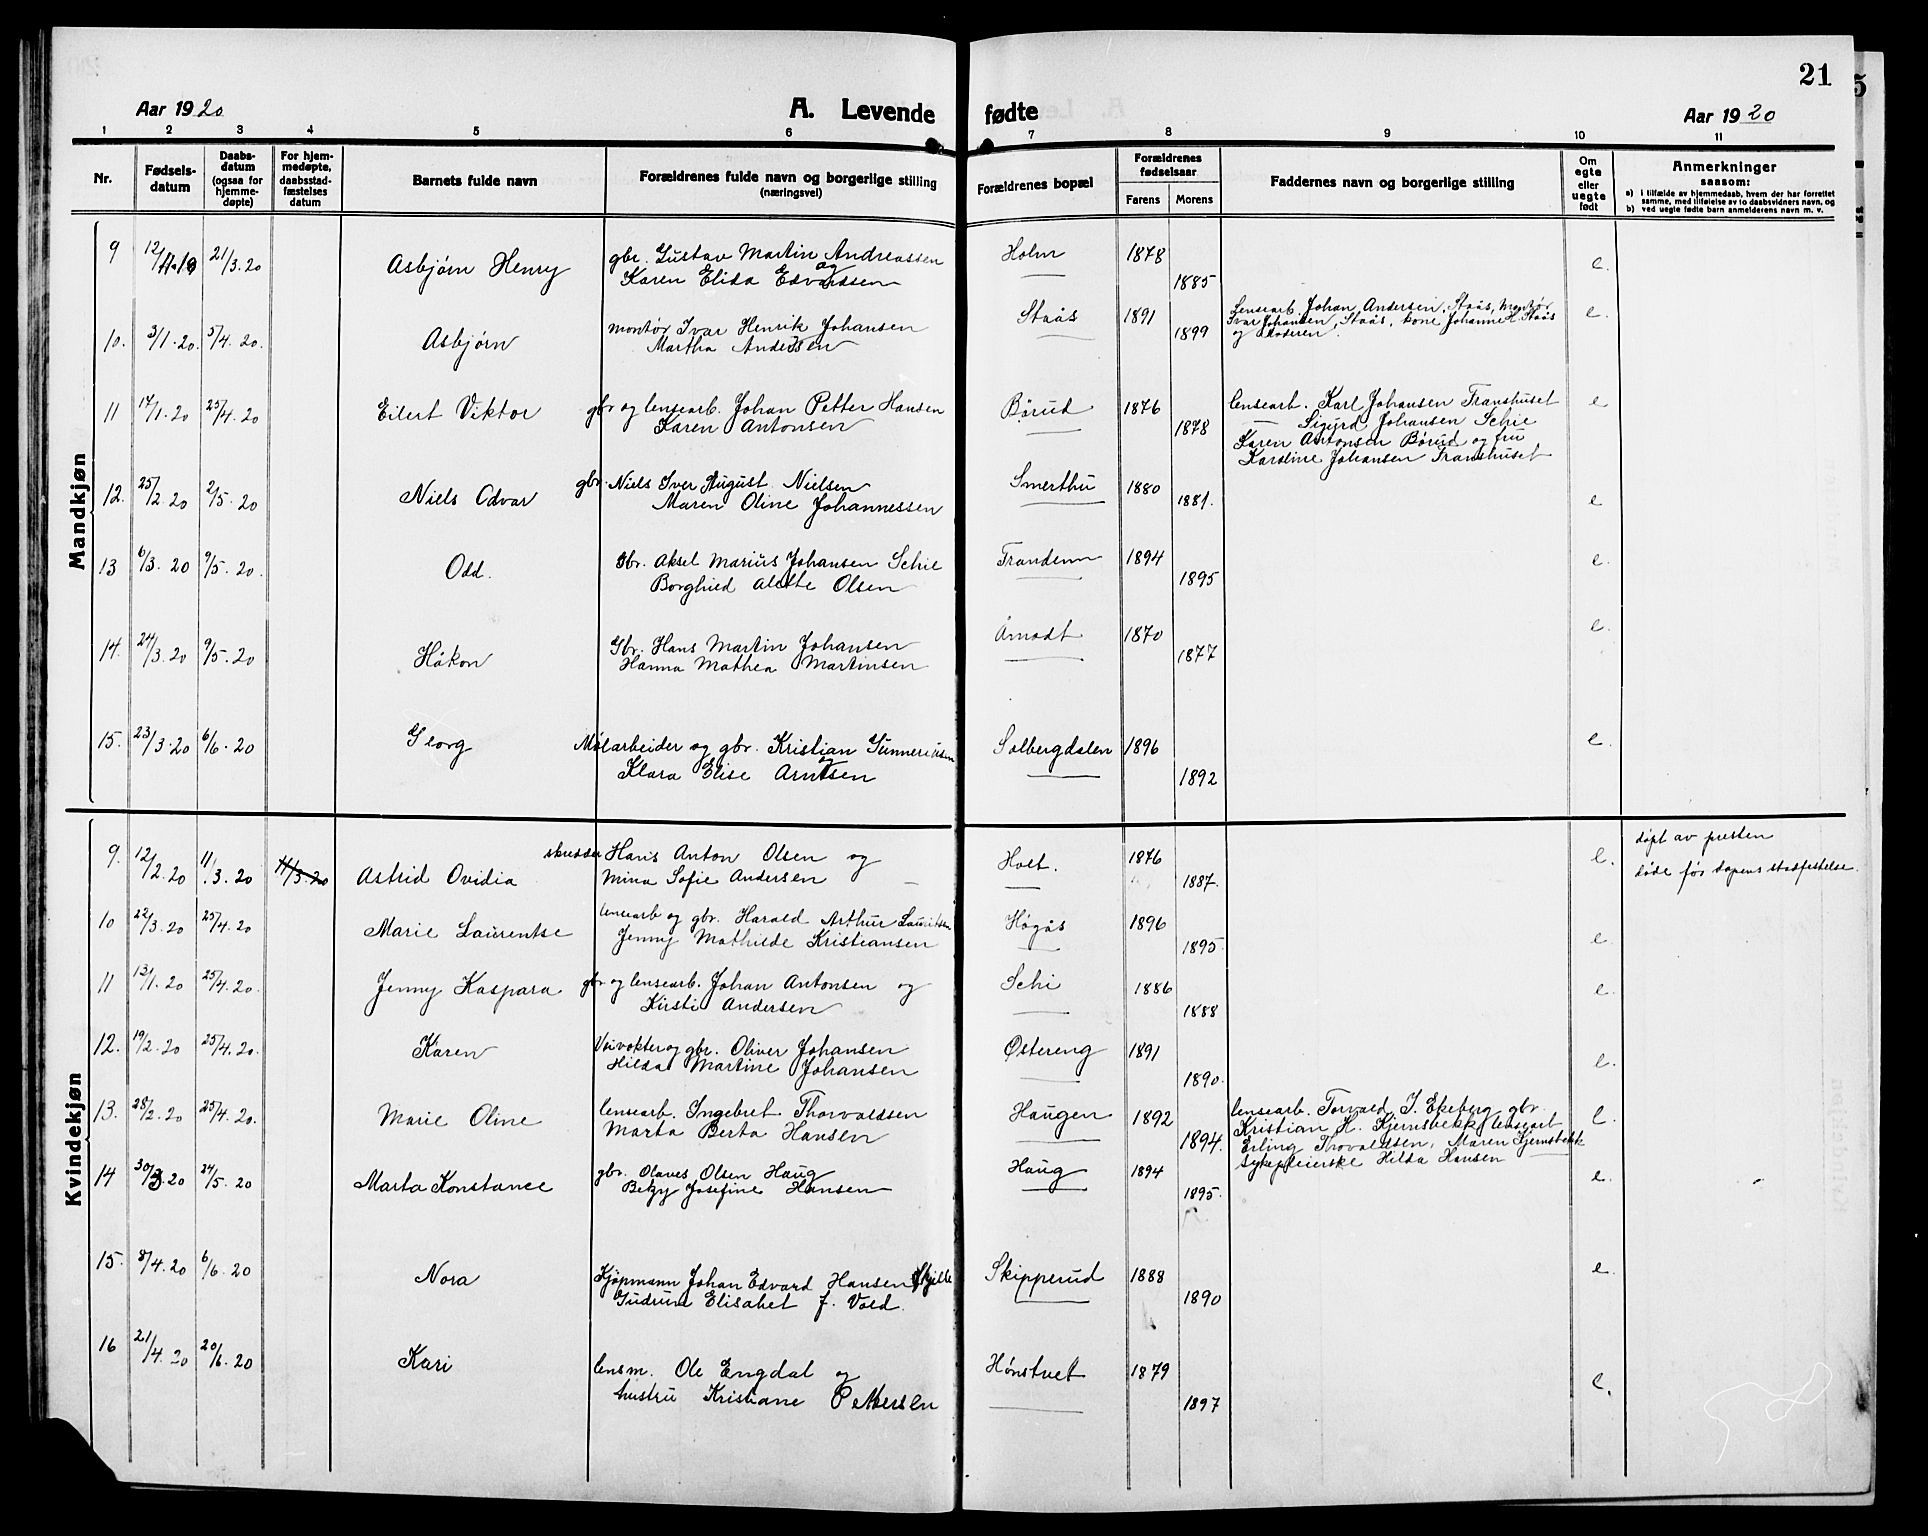 21
Aar 1920 A. Levende fødte Aar 1920
1 2 3 4 5 6 7 8 9 10 11
Nr. Fødsels-datum Daabs-datum (ogsaa for hjemme-døpte) For hjem-medøpte, daabsstad-fæstelses datum Barnets fulde navn Forældrenes fulde navn og borgerlige stilling (næringsvei) Forældrenes bopæl Forældrenes fødselsaar Farens Morens Faddernes navn og borgerlige stilling Om egte eller uegte født Anmerkninger saasom:
a) i tilfælde av hjemmedaab, hvem der har forrettet samme, med tilføielse av to daabsvidners navn, og
b) ved uegte fødte barn anmelderens navn m. v.
Mandkjøn
9 12/11.19 21/3.20 Asbjørn Henry gbr. Gustav Martin Andreassen og Holm 1878 e.
Karen Elida Edvardsen 1885
10. 3/1.20. 5/4.20. Asbjørn montør Ivar Henrik Johansen Staås 1891 Lensearb. Johan Andersen, Staås, Montør e.
Martha Andersen 1899 Ivar Johansen, Staås, kone Johanne H. Staås
og Moderen.
11 17/1.20 25/4.20 Eilert Viktor gbr og lensearb. Johan Petter Hansen Børud 1876 lensearb. Karl Johansen Tranhuset e
Karen Antonsen 1878 — Sigurd Johansen Schie
Karen Antonsen Børud og fru
Karoline Johansen Tranhuset
12. 25/2.20 2/5.20 Niels Odvar gbr. Niels Iver August Nielsen Smerthu 1880 e
Maren Oline Johannessen 1881.
13 6/3.20 9/5.20. Odd. Gbr. Aksel Marius Johansen Schie 1894 e.
Olsen 1895
14. 24/3.20 9/5.20 Håkon Gbr. Hans Martin Johansen Åmodt 1870 e.
Hanna Mathea Martinsen 1877
15. 23/3.20 6/6.20 Georg Mølarbeider og gbr. Kristian Gunneriusen og Solbergdalen 1896 e.
Klara Elise Arntsen 1892
Kvindekjøn
9. 12/2.20 11/3.20 11/3.20 Astrid Ovidia skredder Hans Anton Olsen og Holt. 1876 e. døpt av presten
Mina Sofie Andersen 1887. døde før dapens stadfestelse.
10 22/3.20 25/4.20 Marie Laurentse lensearb og gbr. Harald Arthur Lauritsen Høgås 1896 e.
Jenny Mathilde Kristiansen 1895.
11 13/1.20 25/4.20. Jenny Kaspara gbr og lensearb. Johan Antonsen og Schi 1886 e.
Kirsti Andersen 1888
12. 19/2.20 25/4.20. Karen Veivokter og gbr. Oliver Johansen Østereng 1891 e.
Hilda Martine Johansen 1890.
13. 28/2.20 25/4.20. Marie Oline lensearb. Ingebret Thorvaldsen Haugen 1892 lensearb. Torvald I. Ekeberg, gbr. e.
Marta Berta Hansen 1894. Kristian H. Kjernsbekk, lensearb
Erling Thorvaldsen, Maren Kjernsbekk
sykepleierske Hilda Hansen
14 30/3.20 24/5.20 Marta Konstance gbr. Olaves Olsen Haug Haug 1894 e.
Betzy Josefine Hansen 1895.
15. 8/4.20 6/6.20 Nora Kjøpmann Johan Edvard Hansen Skipperud 1888 e.
Gudrun Elisabet f. Vold. 1890
16 21/4.20 20/6.20 Kari lensm. Ole Engdal og Hønstvet 1879 e.
hustru Kristiane Pettersen 1897